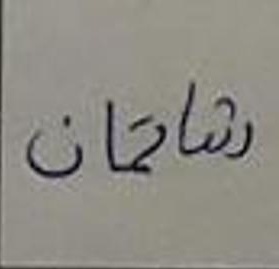 رشاتمان